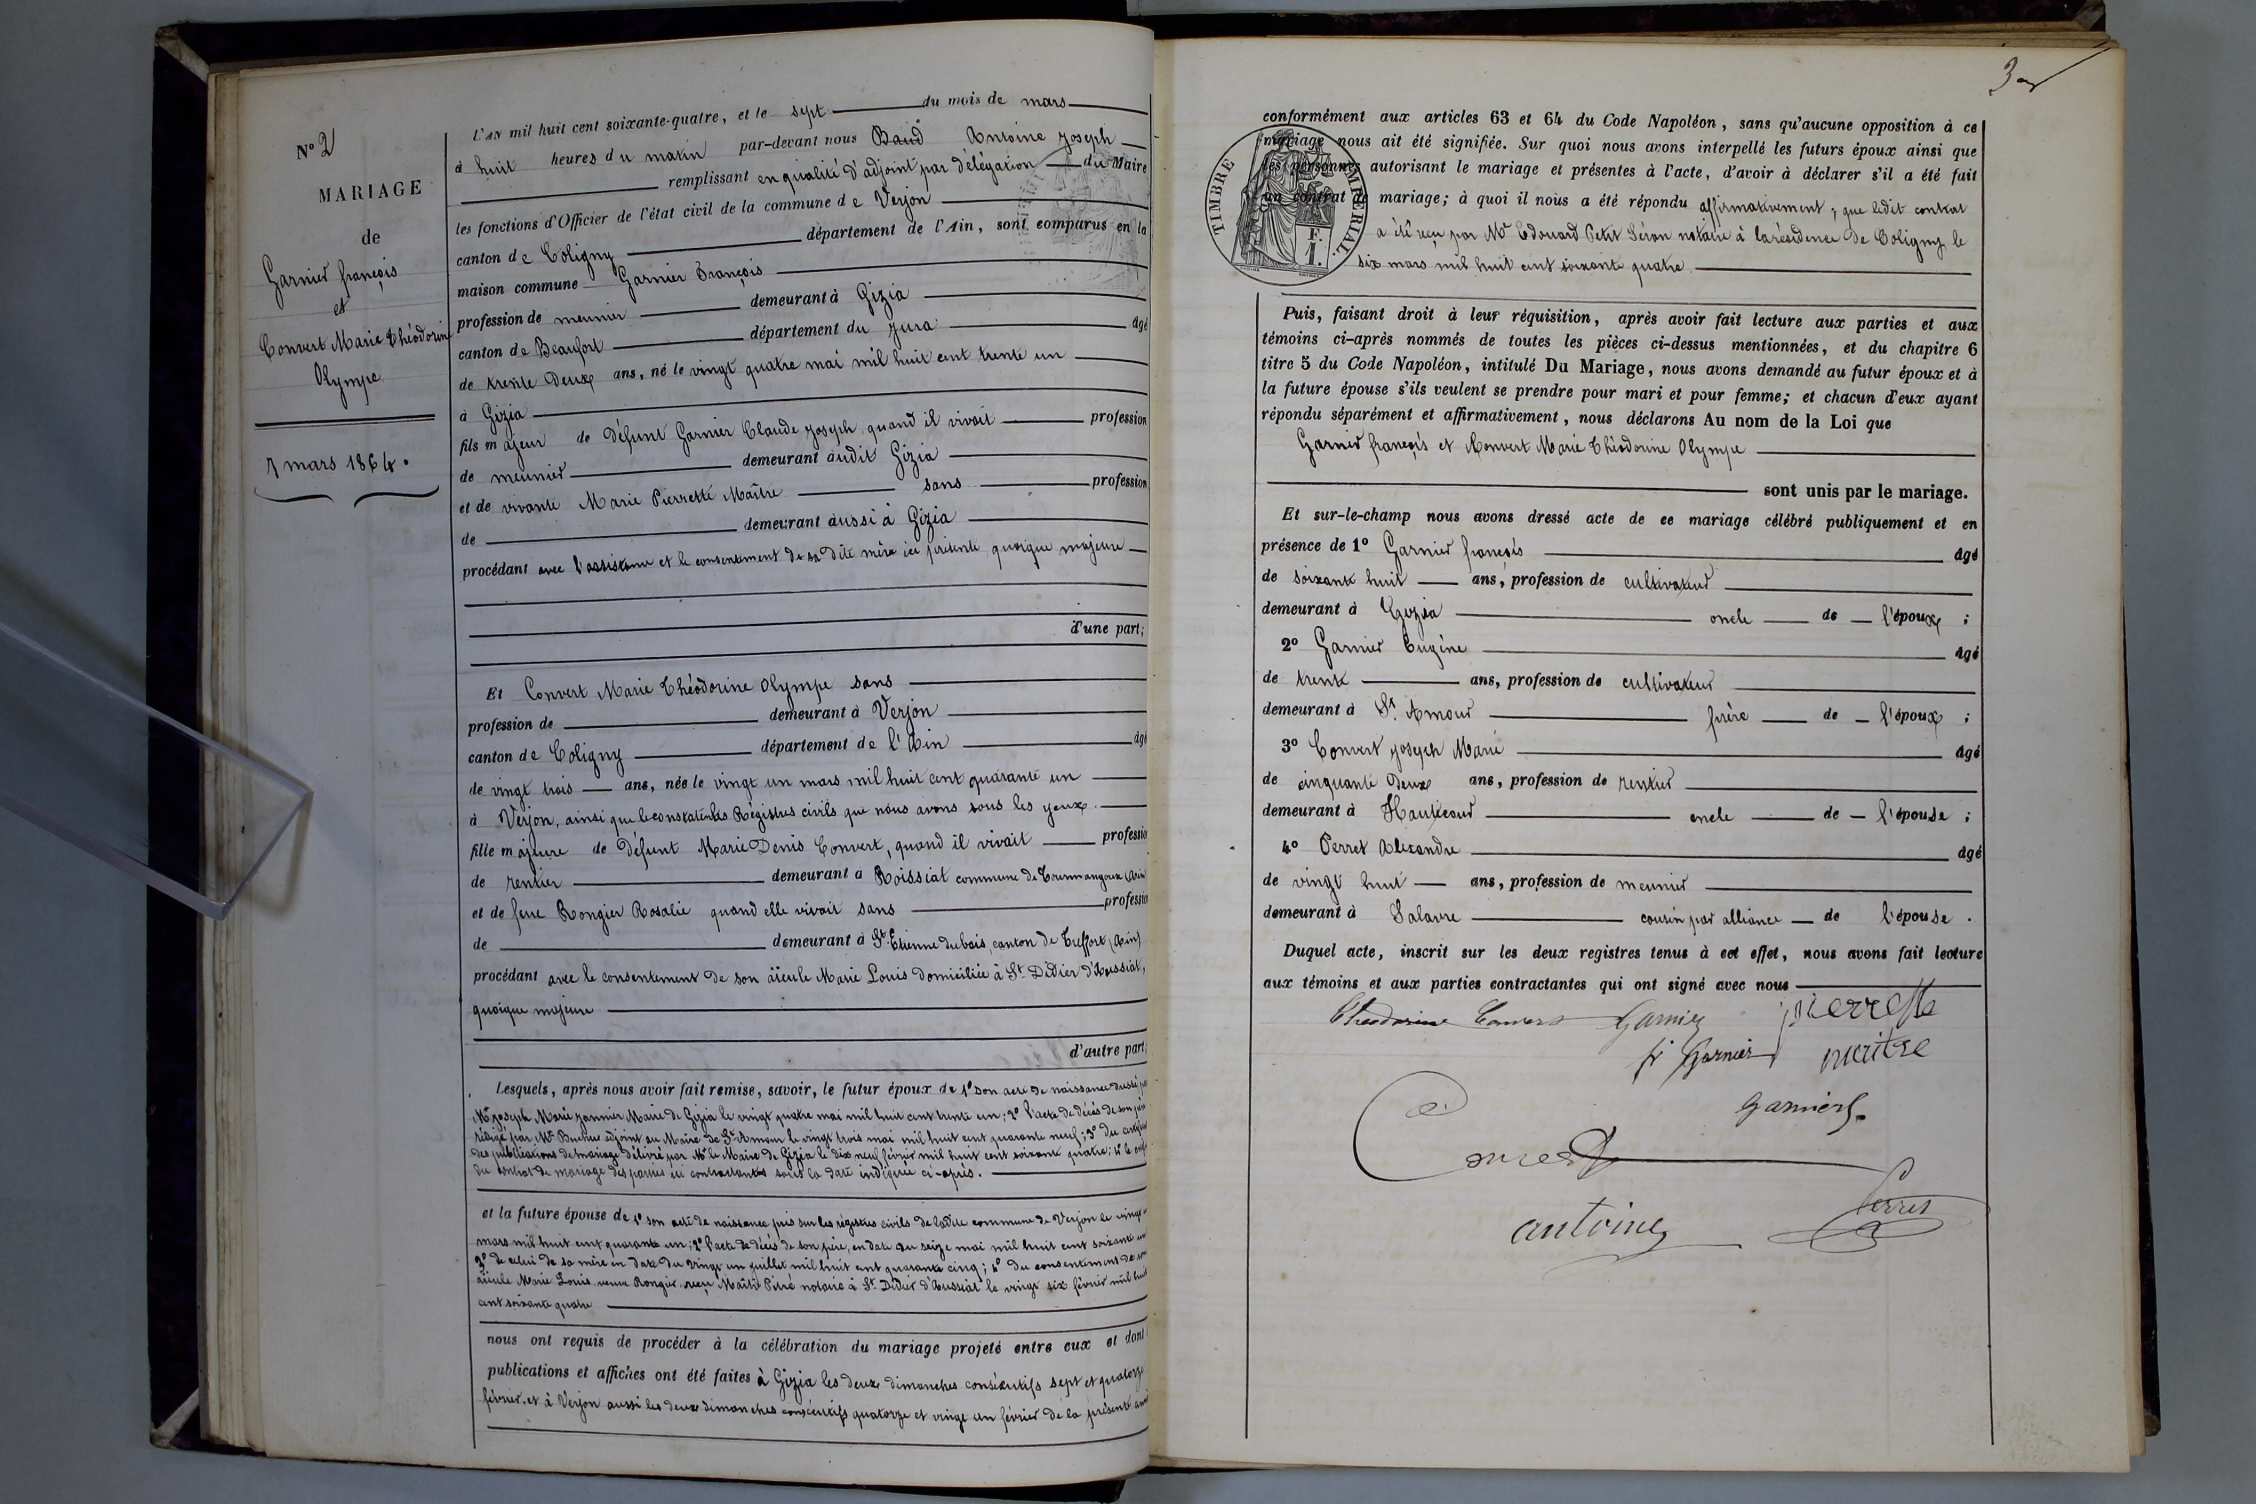 N° 2
MARIAGE
de
Garnier françois
et
Convert Marie Théodorine
Olympe
7 mars 1864.
L'AN mil huit cent soixante-quatre, et le sept du mois de mars
à huit heures du matin par-devant nous Baud Antoine Joseph
remplissant en qualité d'adjoint par délégation du Maire
les fonctions d'Officier de l'état civil de la commune de Verjon
canton de Coligny département de l'Ain, sont comparus en la
maison commune Garnier François
profession de meunier demeurant à Gizia
canton de Beaufort département du Jura âgé
de trente Deux ans, né le vingt quatre mai mil huit cent trente un
à Gizia
fils majeur de défunt Garnier Claude Joseph quand il vivait profession
de meunier demeurant audit Gizia
et de vivante Marie Pierrette Maître sans profession
de demeurant aussi à Gizia
procédant avec l'assistance et le consentement de sa dite mère ici présente quoique majeure
d'une part;
Et Convert Marie Théodorine Olympe sans
profession de demeurant à Verjon
canton de Coligny département de l'Ain âgé
de vingt trois ans, née le vingt un mars mil huit cent quarante un
à Verjon, ainsi que le constatent les Régistres civils que nous avons sous les yeux.
fille majeure de défunt Marie Denis Convert, quand il vivait professio
de rentier demeurant à Roissiat commune de Courmangoux (Ain
et de feue Rongier Rosalie quand elle vivait sans professio
de demeurant à St. Etienne du bois, canton de Treffort (Ain)
procédant avec le consentement de son aïeule Marie Louis domiciliée à St Didier d'Aussiat,
quoique majeure
d'autre part;
Lesquels, après nous avoir fait remise, savoir, le futur époux de 1° son acte de naissance dressé
Mr. Joseph Marie Maire de Gizia le vingt quatre mai mil huit cent trente un; 2° l'acte de décès de son père
rédigé par Mr adjoint au Maire de St Amour le vingt trois mai mil huit cent quarante neuf; 3° du
des publications de mariage délivré par Mr le Maire de Gizia le dix neuf février mil huit cent soixante quatre; 4° le
du contrat de mariage des parties ici contractantes sous la date indiquée ci-après.
et la future épouse de 1° son acte de naissance pris sur les régistres civils de ladite commune de Verjon le vingt
mars mil huit cent quarante un; 2° l'acte de décès de son père, en date du seize mai mil huit cent soixante
3° de celui de sa mère en date du vingt un juillet mil huit cent quarante cinq; 4° du consentement de son
aïeule Marie Louis veuve Rongier, reçu Maître notaire à St. Didier d'Aussiat le vingt six février mil huit
cent soixante quatre
nous ont requis de procéder à la célébration du mariage projeté entre eux et dont
publications et affiches ont été faites à Gizia les deux dimanches consécutifs sept et quatorze
février, et à Verjon aussi les deux dimanches consécutifs quatorze et vingt un février de la présente
3
conformément aux articles 63 et 64 du Code Napoléon, sans qu'aucune opposition à ce
mariage nous ait été signifiée. Sur quoi nous avons interpellé les futurs époux ainsi que
les personnes autorisant le mariage et présentes à l'acte, d'avoir à déclarer s'il a été fait
un contrat de mariage; à quoi il nous a été répondu affirmativement, que ledit contrat
a été reçu par Mr Edouard Petit notaire à la résidence de Coligny le
six mars mil huit cent soixante quatre
TIMBRE IMPERIAL.
F.
1.
Puis, faisant droit à leur réquisition, après avoir fait lecture aux parties et aux
témoins ci-après nommés de toutes les pièces ci-dessus mentionnées, et du chapitre 6
titre 5 du Code Napoléon, intitulé Du Mariage, nous avons demandé au futur époux et à
la future épouse s'ils veulent se prendre pour mari et pour femme; et chacun d'eux ayant
répondu séparément et affirmativement, nous déclarons Au nom de la Loi que
Garnier françois et Convert Marie Théodorine Olympe
sont unis par le mariage.
Et sur-le-champ nous avons dressé acte de ce mariage célébré publiquement et en
présence de 1° Garnier françois âgé
de soixante huit ans, profession de cultivateur
demeurant à Gizia oncle de l'époux ;
2° Garnier Eugène âgé
de trente ans, profession de cultivateur
demeurant à St. Amour frère de l'époux ;
3° Convert Joseph Marie âgé
de cinquante Deux ans, profession de rentier
demeurant à Hautecour oncle de l'épouse ;
4° Perret Alexandre âgé
de vingt huit ans, profession de meunier
demeurant à Salavre cousin par alliance de l'épouse .
Duquel acte, inscrit sur les deux registres tenus à cet effet, nous avons fait lecture
aux témoins et aux parties contractantes qui ont signé avec nous
Theodorine Convert Garnier pierrette
fr Garnier maitre
Garnier
Convert
antoine Perret